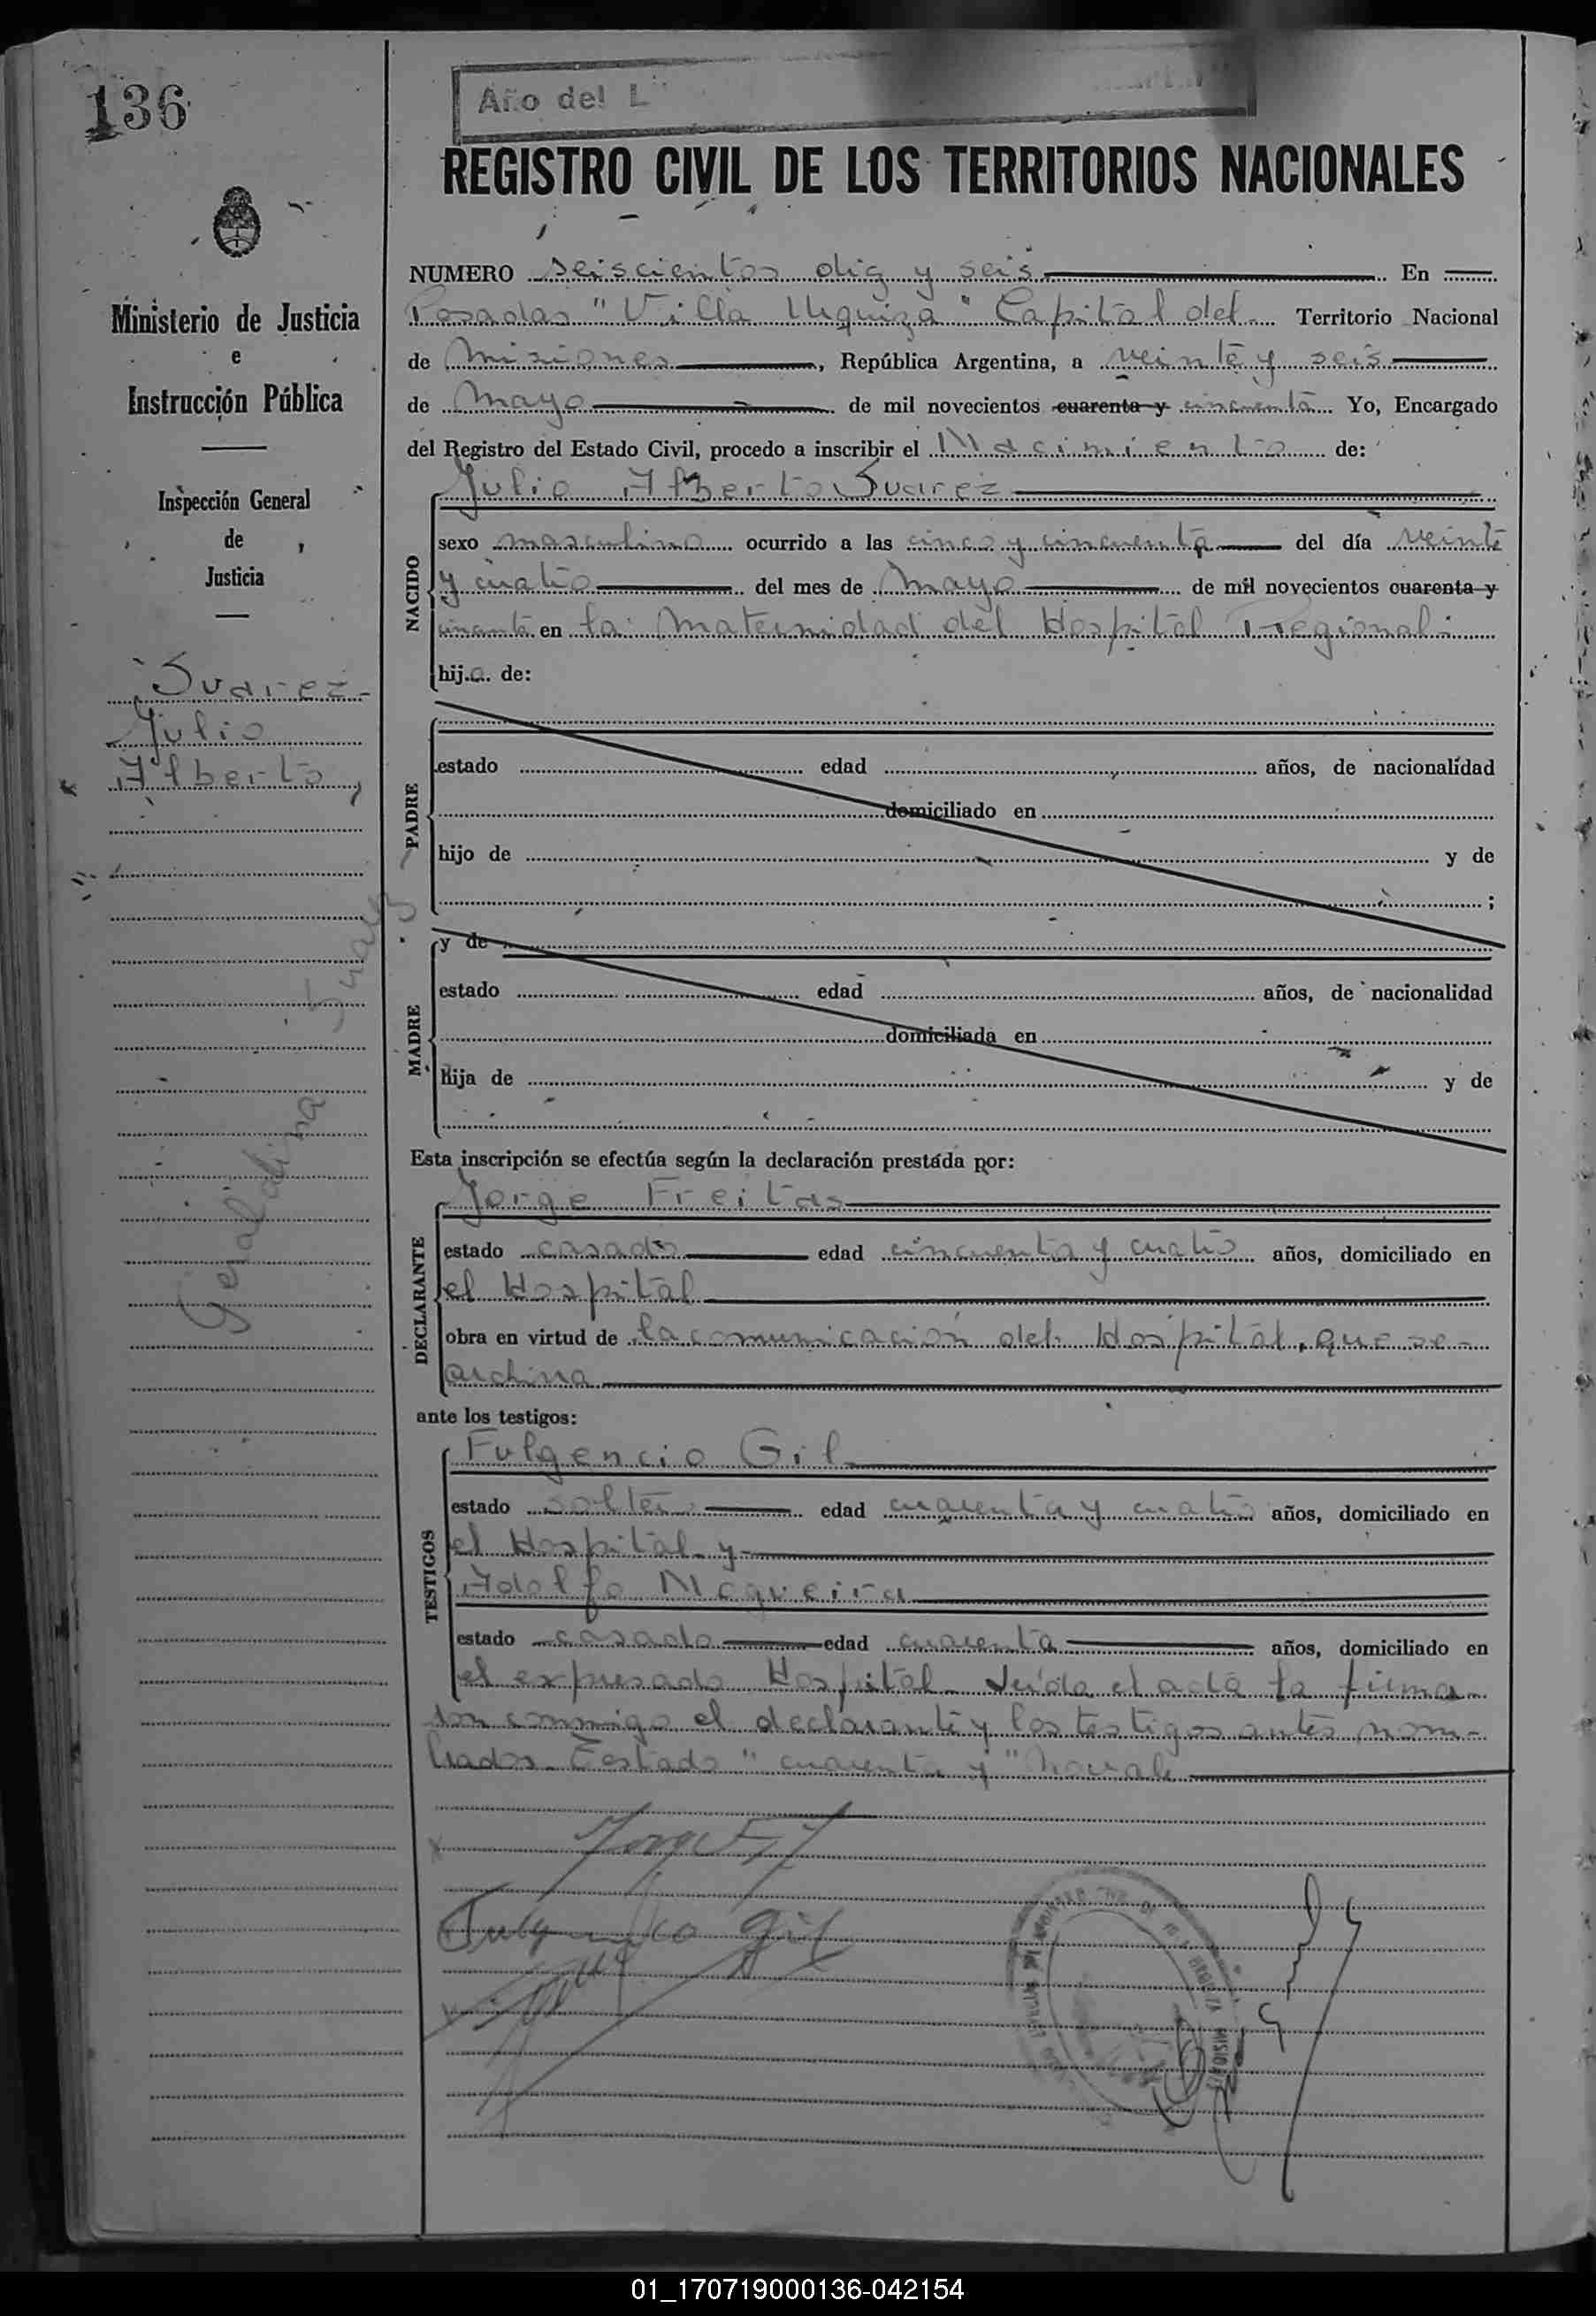 136
Año del L
REGISTRO CIVIL DE LOS TERRITORIOS NACIONALES
Ministerio de Justicia
e
Instrucción Pública
Inspección General
de
Justicia
Suarez
Julio
Alberto
Suarez
NUMERO seiscientos diez y seis En
Posadas "Villa Urquiza" Capital del Territorio Nacional
de Misiones, República Argentina, a veinte y seis
de Mayo de mil novecientos cuarenta y cincuenta Yo, Encargado
del Registro del Estado Civil, procedo a inscribir el Nacimiento de:
NACIDO
Julio Alberto Suarez
sexo masculino ocurrido a las cinco y cincuenta del día veinte
y cuatro del mes de Mayo de mil novecientos cuarenta y
cincuenta en la Maternidad del Hospital Regional
hij.o. de:
PADRE
estado edad años, de nacionalidad
domiciliado en
hijo de y de
;
MADRE
y de
estado edad años, de nacionalidad
domiciliada en
hija de y de
Esta inscripción se efectúa según la declaración prestada por:
DECLARANTE
Jorge Freitas
estado casado edad cincuenta y cuatro años, domiciliado en
el Hospital
obra en virtud de la comunicación del Hospital, que se
archiva
ante los testigos:
TESTIGOS
Fulgencio Gil
estado soltero edad cuarenta y cuatro años, domiciliado en
el Hospital y
Adolfo Noqueira
estado casado edad cuarenta años, domiciliado en
el expresado Hospital. Leída el acta la firma-
ron conmigo el declarante y los testigos antes nom-
brados. Testado "cuarenta y" No vale
Jorge F
Fulgencio Gil
01_170719000136-042154